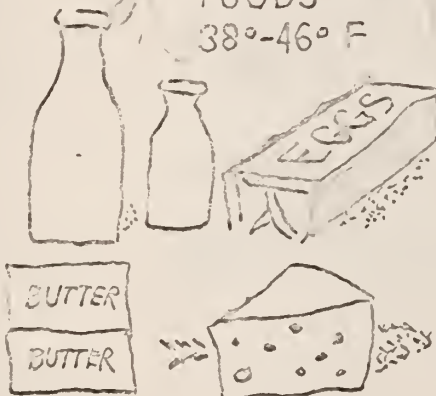 FOODS
38°-46° F
EGGS
BUTTER
BUTTER